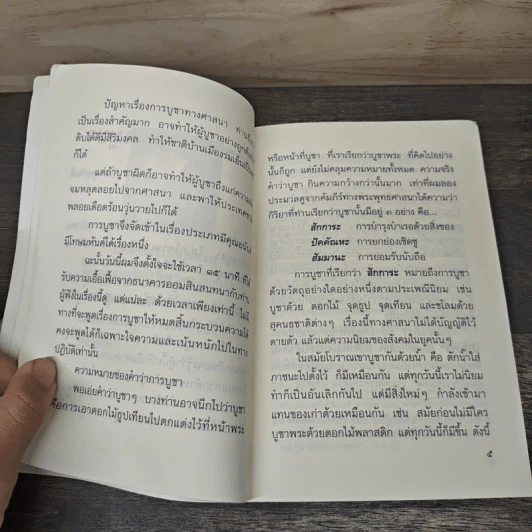 ปัญหาเรื่องการบูชาทางศาสนา
เป็นเรื่องสำคัญมาก อาจทำให้ผู้บูชาอย่างถูกต้อง
ดิบได้ดีมีสิริมงคล ทำให้ชาติบ้านเมืองร่มเย็นเป็น
ก็ได้
แต่ถ้าบูชาผิดก็อาจทำให้ผู้บูชาถึงแก่ความ
จมหลุดลอยไปจากศาสนา และพาให้ประเทศชาติ
พลอยเดือดร้อนวุ่นวายไปก็ได้
การบูชาจึงจัดเข้าในเรื่องประเภทมีคุณอนันต์
มีโทษมหันต์ได้เรื่องหนึ่ง
ฉะนั้นวันนี้ผมจึงตั้งใจจะใช้เวลา ๑๕ นาที ที่ได้
รับความเอื้อเฟื้อจากธนาคารออมสินสนทนากับท่าน
ผู้ฟังในเรื่องนี้ดู แต่แน่ละ ด้วยเวลาเพียงเท่านี้ ไม่มี
ทางที่จะพูดเรื่องการบูชาให้หมดสิ้นกระบวนความได้
คงจะพูดได้ก็เฉพาะใจความและเน้นหนักไปในทาง
ปฏิบัติเท่านั้น
ความหมายของคำว่าการบูชา
พอเอ่ยคำว่าบูชาๆ บางท่านอาจนึกไปว่าบูชา
คือการเอาดอกไม้ธูปเทียนไปตกแต่งไว้ที่หน้าพระ
หรือหน้าที่บูชา ที่เราเรียกว่าบูชาพระ ที่คิดไปอย่าง
นั้นก็ถูก แต่ยังไม่คลุมความหมายทั้งหมด ความจริง
คำว่าบูชา กินความกว้างกว่านั้นมาก เท่าที่ผมลอง
ประมวลดูจากคัมภีร์ทางพระพุทธศาสนาได้ความว่า
กิริยาที่ท่านเรียกว่าบูชานั้นมีอยู่ ๓ อย่าง คือ...
สักการะ การบำรุงบำเรอด้วยสิ่งของ
ปัคคัณหะ การยกย่องเชิดชู
สัมมานะ การยอมรับนับถือ
การบูชาที่เรียกว่า สักการะ หมายถึงการบูชา
ด้วยวัตถุอย่างใดอย่างหนึ่งตามประเพณีนิยม เช่น
บูชาด้วย ดอกไม้ จุดธูป จุดเทียน และชโลมด้วย
สุคนธชาติต่างๆ เรื่องนี้ทางศาสนาไม่ได้บัญญัติไว้
ตายตัว แล้วแต่ความนิยมของสังคมในยุคนั้นๆ
ในสมัยโบราณเขาบูชากันด้วยน้ำ คือ ตักน้ำใส่
ภาชนะไปตั้งไว้ ก็มีเหมือนกัน แต่ทุกวันนี้เราไม่นิยม
ทำก็เป็นอันเลิกกันไป แต่มีสิ่งใหม่ๆ กำลังเข้ามา
แทนของเก่าด้วยเหมือนกัน เช่น สมัยก่อนไม่มีใคร
บูชาพระด้วยดอกไม้พลาสติก แต่ทุกวันนี้ก็มีขึ้น ดังนี้
๕